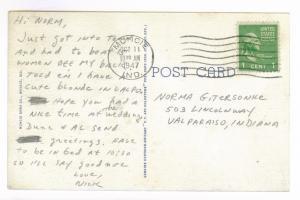 Hi NORM,
Just got into town
And had to beat
women off my back.
Told em I have
cute blonde in Valpo
Hope you had a
nice time at the wedding.
Dunc & Al send
greetings, Have
to be in bed at 10:30
so I'll say goodnite
Love,
Nick
MUNCIE
OCT 11
1947
IND.
UNITED STATES
1 CENT 1
POST CARD
NORMA GITERSONKE
503 LINCOLNWAY
VALPARAISO, INDIANA